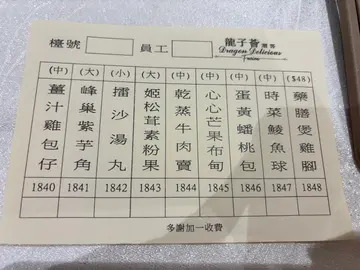 檯號 員工 龍子薈 酒客
Dragon Delicious
Fusion
(中) (大) (小) (大) (中) (中) (中) (中) ($48)
薑汁雞包仔
蜂巢紫芋角
擂沙湯丸
姬松茸素粉果
乾蒸牛肉賣
心心芒果布甸
蛋黃蟠桃包
時菜鯪魚球
藥膳煲雞腳
1840 1841 1842 1843 1844 1845 1846 1847 1848
多謝加一收費